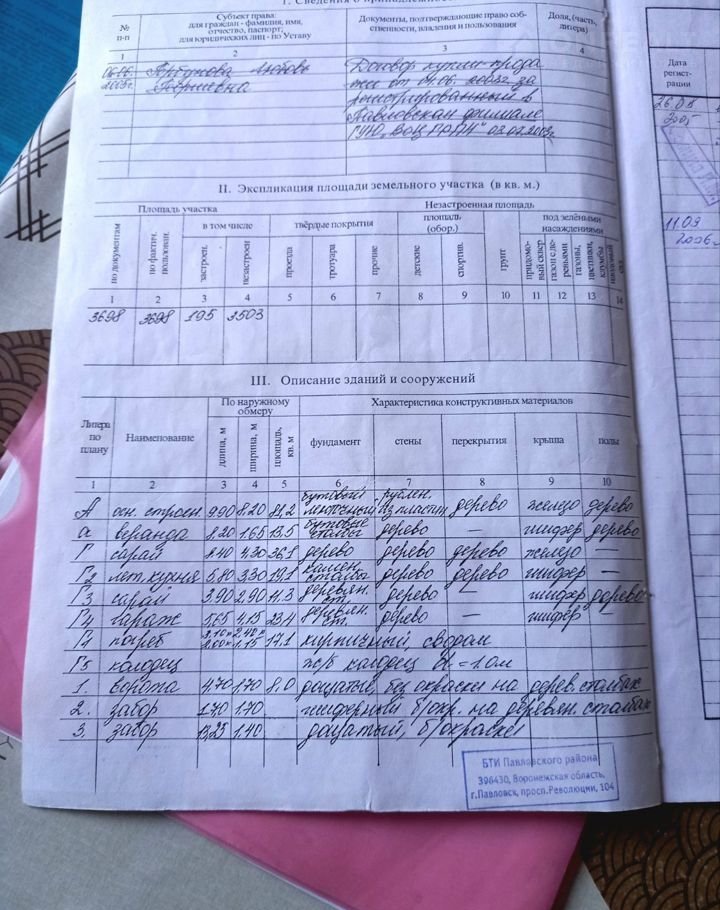 I. Сведения о принадлежности
№ п-п
Субъект права: для граждан - фамилия, имя, отчество, паспорт; для юридических лиц - по Уставу
Документы, подтверждающие право собственности, владения и пользования
Доля, (часть, литера)
1 2 3 4
06.06. 2003г.
Любовь
Договор купли-прода
жи от 04.06. 2003г. за
регистрированный в
Павловском филиале
03.07.2003г.
II. Экспликация площади земельного участка (в кв. м.)
Площадь участка Незастроенная площадь
в том числе твёрдые покрытия площадь (обор.) под зелёными насаждениями
по документам по фактич. пользован. застроен. незастроен проезда тротуара прочие детские спортив. грунт придомовый сквер газон с деревьями газоны, цветники, клумбы
1 2 3 4 5 6 7 8 9 10 11 12 13 14
3698 3698 195 3503
III. Описание зданий и сооружений
Литера по плану Наименование По наружному обмеру Характеристика конструктивных материалов
длина, м ширина, м площадь, кв. м фундамент стены перекрытия крыша полы
1 2 3 4 5 6 7 8 9 10
А осн. строен. 9.90 8.20 81.2 бутовый ленточный рублен. из пластин дерево железо дерево
а веранда 8.20 1.65 13.5 бутовые столбы дерево — шифер дерево
Г сарай 8.40 4.30 36.1 дерево дерево дерево железо —
Г2 лет. кухня 5.80 3.30 19.1 камен. столбы дерево дерево шифер —
Г3 сарай 3.90 2.90 11.3 деревян. ст. дерево — шифер дерево
Г4 гараж 4.15 23.4 деревян. ст. дерево — шифер —
погреб 17.1 кирпичный, сводом
Г5 колодец ж/б колодец d = 1.0м
1. ворота 4.70 1.70 8.0 дощатые, без окраски на дерев. столбах
2. забор 1.70 1.70 шиферный б/окр. на деревян. столбах
3. забор 13,25 1.40 дощатый, б/окраски
БТИ Павловского района
396430, Воронежская область,
г.Павловск, просп.Революции, 104
Дата регистрации
26.05
2005
11.03
2006г.